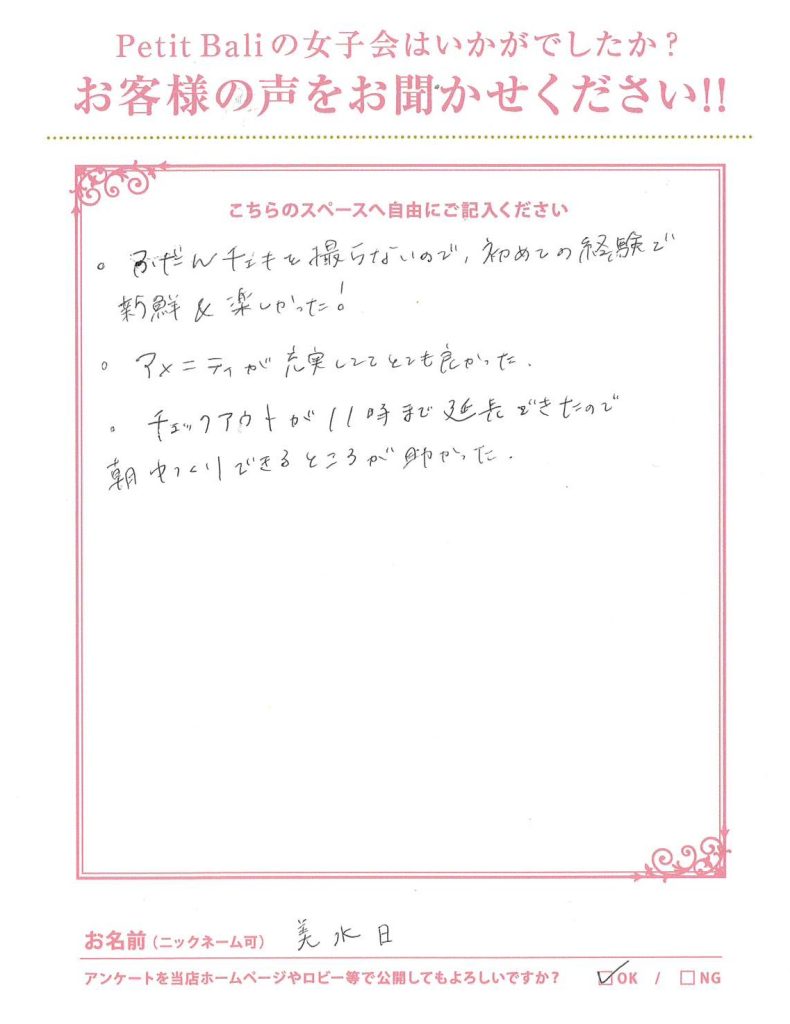 Petit Baliの女子会はいかがでしたか？
お客様の声をお聞かせください!!
こちらのスペースへ自由にご記入ください
。ふだんチェキを撮らないので,初めての経験で
新鮮&楽しかった!
。アメニティが充実しててとても良かった.
。チェックアウトが11時まで延長できたので
朝ゆっくりできるところが助かった.
お名前（ニックネーム可） 美水日
アンケートを当店ホームページやロビー等で公開してもよろしいですか？ ☑OK / □NG